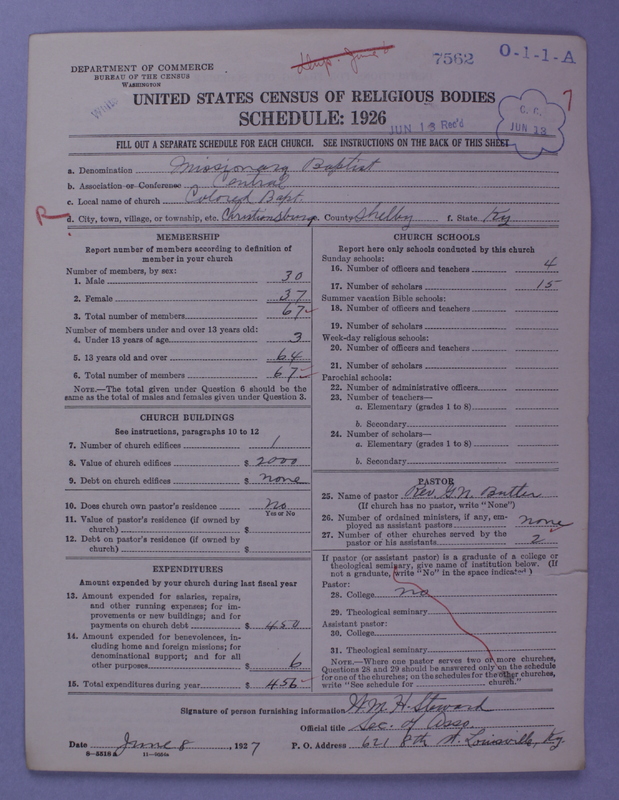 7562 O-1-1-A
DEPARTMENT OF COMMERCE
BUREAU OF THE CENSUS
WASHINGTON
UNITED STATES CENSUS OF RELIGIOUS BODIES
SCHEDULE: 1926
JUN 13 Rec'd
JUN 13
7
FILL OUT A SEPARATE SCHEDULE FOR EACH CHURCH. SEE INSTRUCTIONS ON THE BACK OF THIS SHEET
a. Denomination Missionary Baptist
b. Association or Conference Central
c. Local name of church Colored Bapt.
R d. City, town, village, or township, etc. Christiansburg e. County Shelby f. State Ky
MEMBERSHIP
Report number of members according to definition of
member in your church
Number of members, by sex:
1. Male 30
2. Female 37
3. Total number of members 67
Number of members under and over 13 years old:
4. Under 13 years of age 3
5. 13 years old and over 64
6. Total number of members 67
NOTE.—The total given under Question 6 should be the
same as the total of males and females given under Question 3.
CHURCH BUILDINGS
See instructions, paragraphs 10 to 12
7. Number of church edifices 1
8. Value of church edifices $ 2000
9. Debt on church edifices $ none
10. Does church own pastor's residence No
Yes or No
11. Value of pastor's residence (if owned by
church) $
12. Debt on pastor's residence (if owned by
church) $
EXPENDITURES
Amount expended by your church during last fiscal year
13. Amount expended for salaries, repairs,
and other running expenses; for im-
provements or new buildings; and for
payments on church debt $ 450
14. Amount expended for benevolences, in-
cluding home and foreign missions; for
denominational support; and for all
other purposes $ 6
15. Total expenditures during year $ 456
CHURCH SCHOOLS
Report here only schools conducted by this church
Sunday schools:
16. Number of officers and teachers 4
17. Number of scholars 15
Summer vacation Bible schools:
18. Number of officers and teachers
19. Number of scholars
Week-day religious schools:
20. Number of officers and teachers
21. Number of scholars
Parochial schools:
22. Number of administrative officers
23. Number of teachers—
a. Elementary (grades 1 to 8)
b. Secondary
24. Number of scholars—
a. Elementary (grades 1 to 8)
b. Secondary
PASTOR
25. Name of pastor Rev. G. N. Butler
(If church has no pastor, write "None")
26. Number of ordained ministers, if any, em-
ployed as assistant pastors none
27. Number of other churches served by the
pastor or his assistants 2
If pastor (or assistant pastor) is a graduate of a college or
theological seminary, give name of institution below. (If
not a graduate, write "No" in the space indicated)
Pastor:
28. College no
29. Theological seminary
Assistant pastor:
30. College
31. Theological seminary
NOTE.—Where one pastor serves two or more churches,
Questions 28 and 29 should be answered only on the schedule
for one of the churches; on the schedules for the other churches,
write "See schedule for church."
Signature of person furnishing information Wm H. Steward
Official title Sec. of Asso.
Date June 8, 1927 P. O. Address 621 8th St. Louisville, Ky.
8—5518A